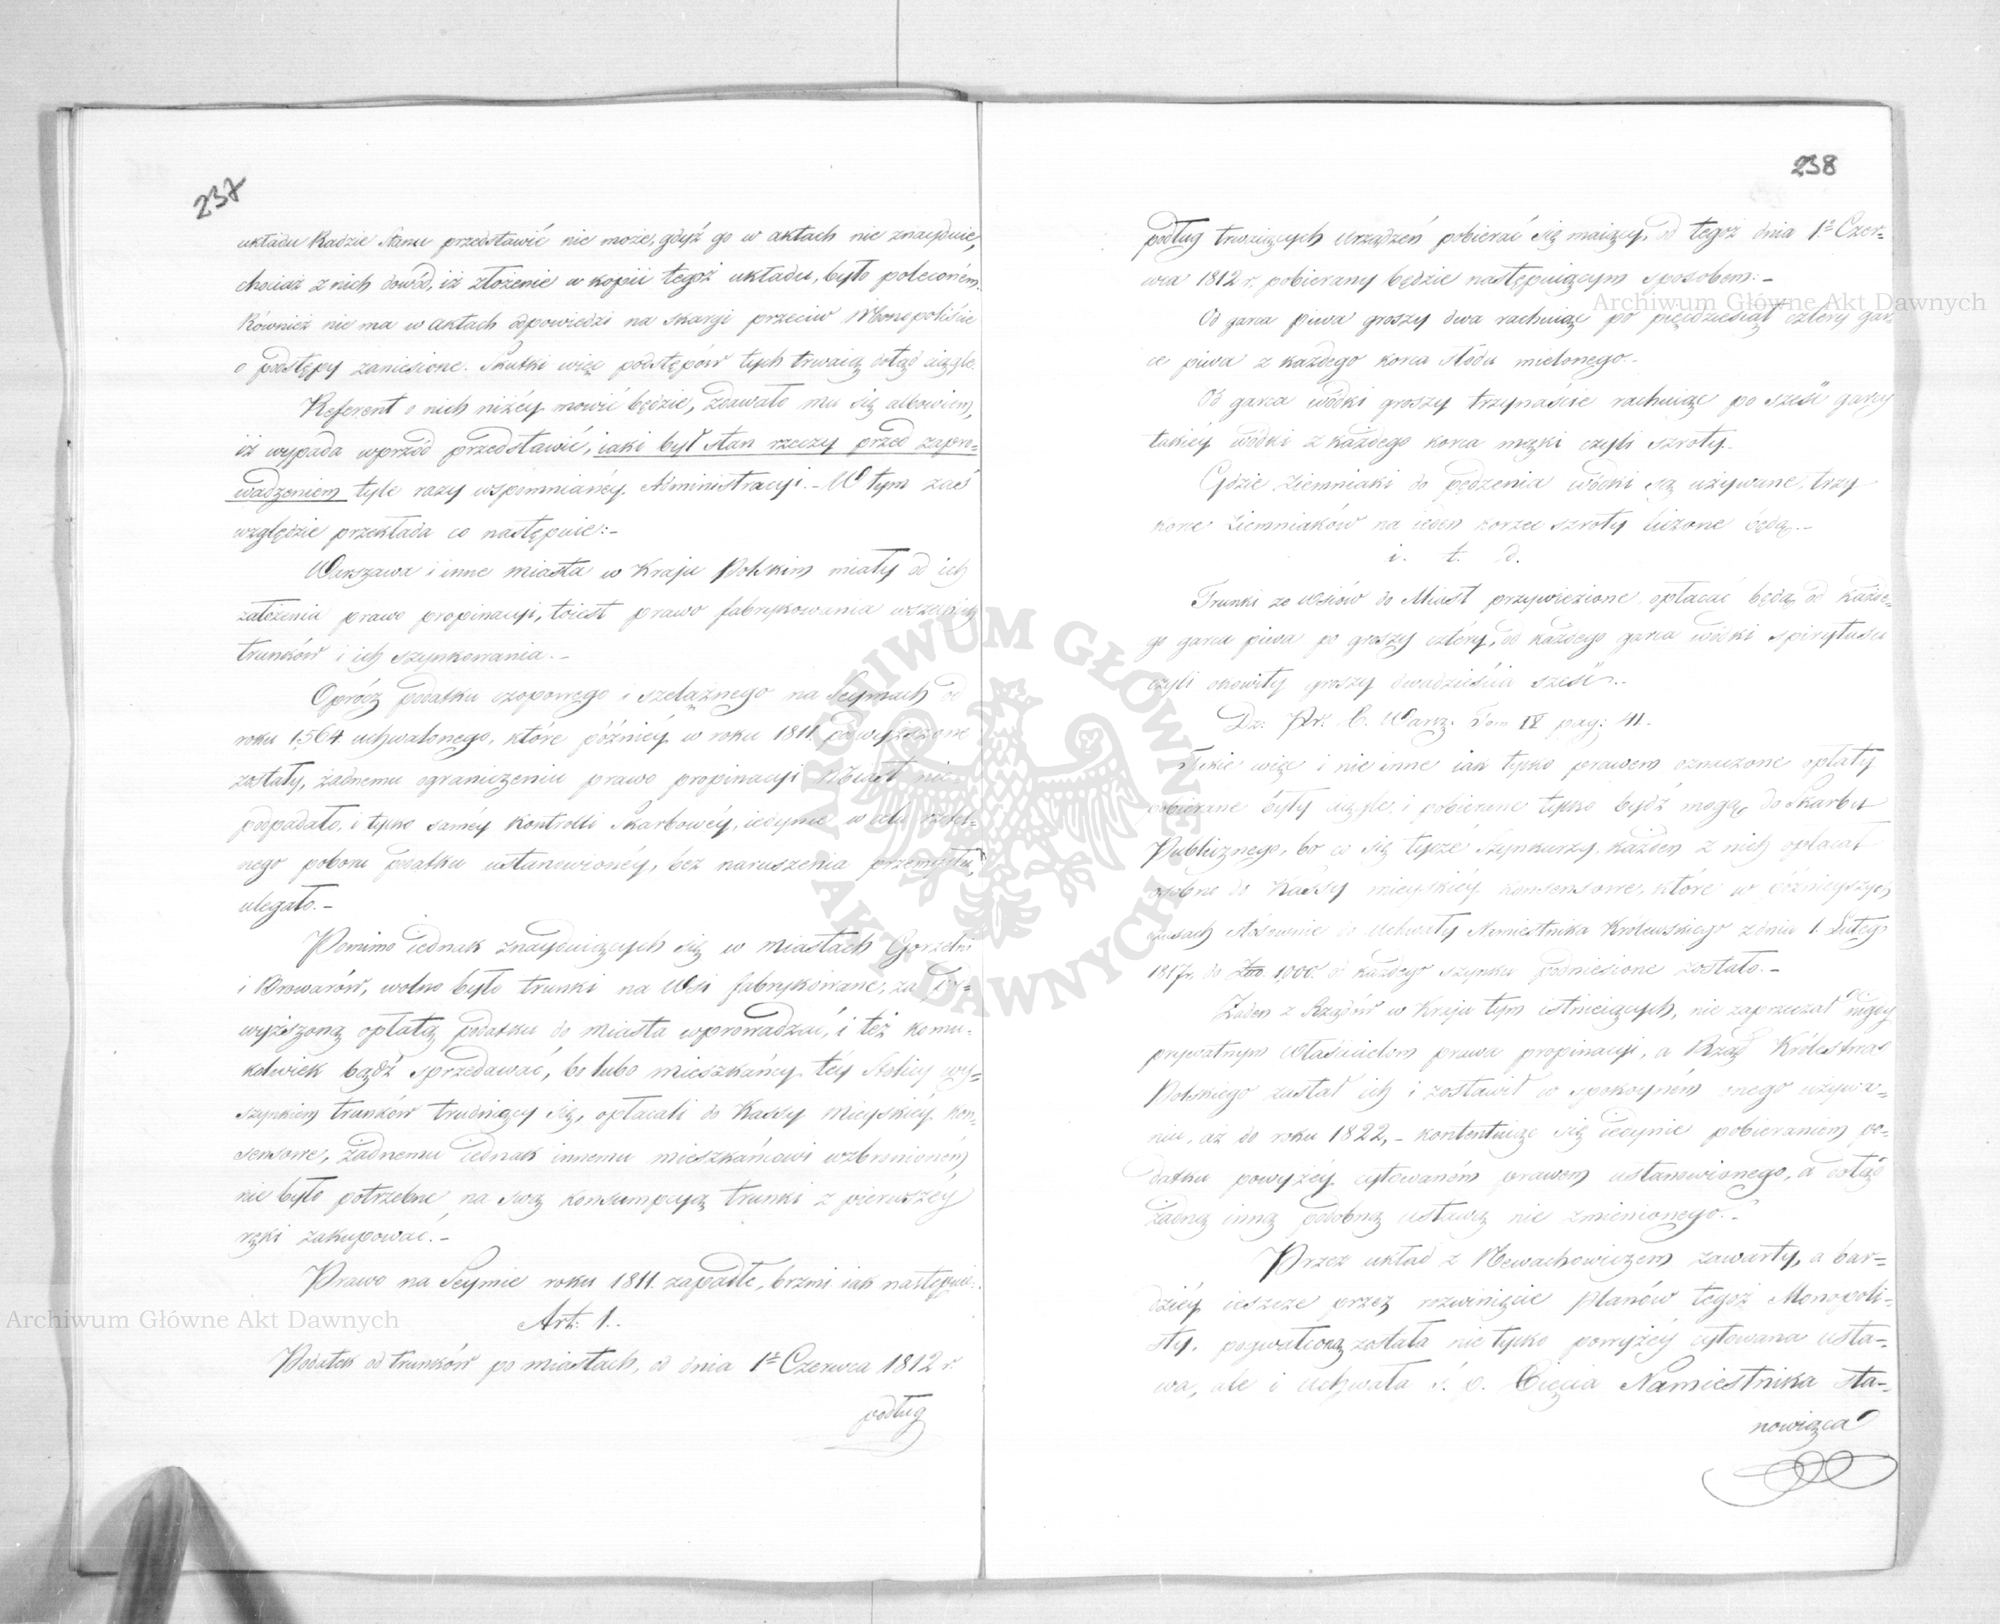 237
układu Radzie Stanu przedstawić nie może, gdyż go w aktach nie znayduie,
chociaż z nich dowód, iż złożenie w kopii tegoż układu, było poleconém.
Również nie ma w aktach odpowiedzi na skargi przeciw Monopoliście
o podstępy zaniesione. Skutki więc podstępów tych trwaią dotąd ciągle.
Referent o nich niżéy mówić będzie, zdawało mu się albowiem,
iż wypada wprzód przedstawić, iaki był stan rzeczy przed zapro-
wadzeniem tyle razy wspomnianéy Administracyi. – W tym zaś
względzie przekłada co następuie: –
Warszawa i inne miasta w Kraju Polskim miały od ich
założenia prawo propinacyi, toiest prawo fabrykowania wszelkich
trunków i ich szynkowania. –
Oprócz podatku czopowego i szelążnego na Seymach od
roku 1564 uchwalonego, które późniéy w roku 1811 podwyższone
zostały, żadnemu ograniczeniu prawo propinacyi Miast nie
podpadało, i tylko saméy Kontrolli Skarbowéy, iedynie w celu rzetel-
nego poboru podatku ustanowionéy, bez naruszenia przemysłu,
ulegało. –
Pomimo iednak znayduiących się w miastach Gorzelni
i Browarów, wolno było trunki na Wsi fabrykowane, za pod-
wyższoną opłatą podatku do miasta wprowadzać, i też komu-
kolwiek bądź sprzedawać, bo lubo mieszkańcy téy Stolicy wy-
szynkiem trunków trudniący się, opłacali do Kassy Mieyskiéy kon-
sensowe, żadnemu iednak innemu mieszkańcowi wzbronioném
nie było potrzebne na swą konsumpcyą trunki z pierwszéy
ręki zakupować. –
Prawo na Seymie roku 1811 zapadłe, brzmi iak następuie.
Art: 1.
Podatek od trunków po miastach, od dnia 1º Czerwca 1812 r.
podług
238
podług trwaiących urządzeń pobierać się maiący, od tegoż dnia 1º Czer-
wca 1812 r. pobierany będzie następuiącym sposobem: –
Od garca piwa groszy dwa rachuiąc po pięćdziesiąt cztery gar-
ce piwa z każdego korca słodu mielonego. –
Od garca wódki groszy trzynaście rachuiąc po sześć garcy
takiéy wódki z każdego korca mąki czyli szroty. –
Gdzie Ziemniaki do pędzenia wódki są używane, trzy
korce Ziemniaków na ieden korzec szroty liczone będą. –
i. t. d.
Trunki ze Wsiów do Miast przywiezione opłacać będą od każde-
go garca piwa po groszy cztéry, od każdego garca wódki spirytusu
czyli okowity groszy dwadzieścia sześć. –
Dz: Pr: X. Warsz: Tom IV pag: 41.
Takie więc i nie inne iak tylko prawem oznaczone opłaty
pobierane były ciągle i pobierane tylko bydź mogą do Skarbu
Publicznego, bo co się tycze Szynkarzy, każden z nich opłacał
osobne do Kassy mieyskiéy konsensowe, które w późnieyszych
czasach stósownie do Uchwały Namiestnika Królewskiego z dnia 1. Lutego
1817 r. do Złt. 1,000. od każdego szynku podniesione zostało. –
Żaden z Rządów w Kraju tym istnieiących, nie zaprzeczał nigdy
prywatnym Właścicielom prawa propinacyi, a Rząd Królestwa
Polskiego zastał ich i zostawił w spokoyném onego używa-
niu, aż do roku 1822, – kontentuiąc się iedynie pobieraniem po-
datku powyżéy cytowaném prawem ustanowionego, a dotąd
żadną inną podobną ustawą nie zmienionego. –
Przez układ z Newachowiczem zawarty, a bar-
dziéy ieszcze przez rozwinięcie planów tegoż Monopoli-
sty, pogwałconą została nie tylko powyżéy cytowana usta-
wa, ale i Uchwała ś. p. Xięcia Namiestnika sta-
nowiąca
Archiwum Główne Akt Dawnych
Archiwum Główne Akt Dawnych
ARCHIWUM GŁÓWNE AKT DAWNYCH